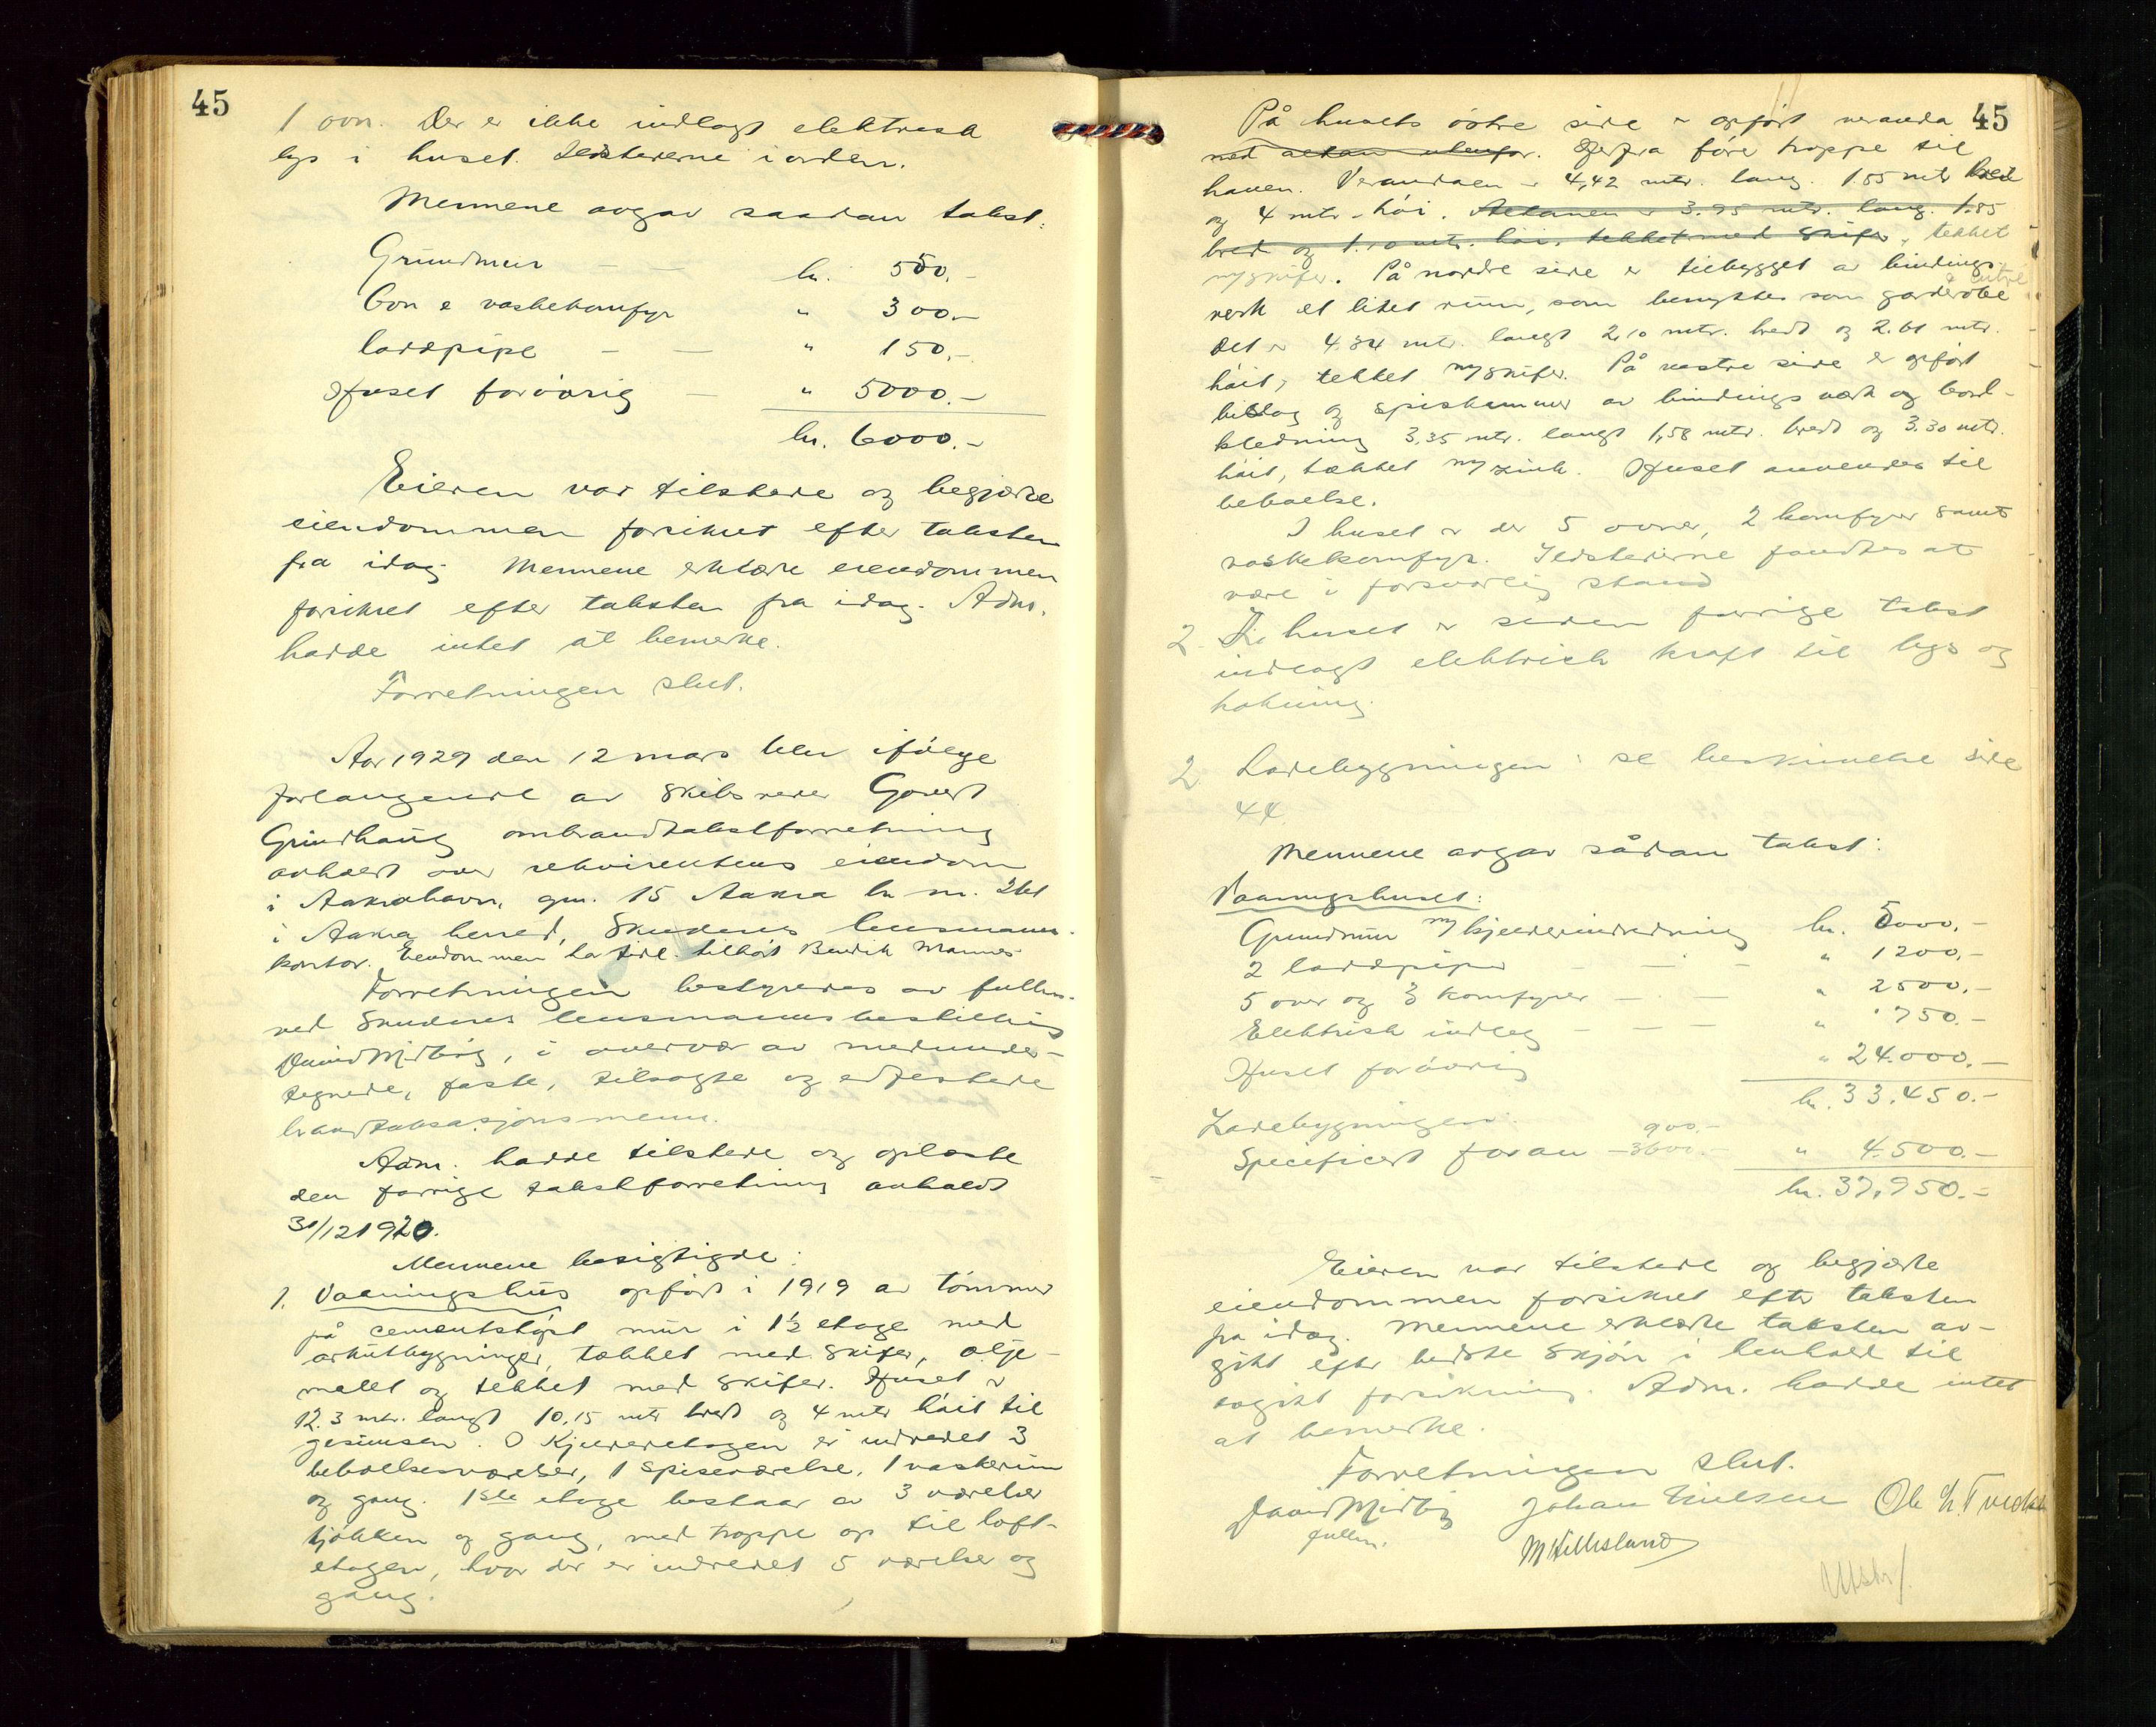 45
1 ovn. Der er ikke indlagt elektrisk
lys i huset. Ildstederne i orden.
Mennene avgav saadan takst:
Grundmur — — kr. 550.-
1 ovn & vaskekomfyr " 300.-
1 asdpipe — — " 150.-
Huset forövrig — " 5000.-
kr. 6000.-
Eieren var tilstede og begjærte
eiendommen forsikret efter taksten
fra idag. Mennene erklærte eiendommen
forsikret efter taksten fra idag. Adm.
hadde intet at bemerke.
Forretningen slut.
Aar 1929 den 12 mars blev ifölge
forlangende av skibsreder Govert
Grindhaug ombrandtakstforretning
avholdt over rekvirentens eiendom
i Aakrahavn, gnr. 15 Aakra br. nr. 261
i Aakra herred, Skudenes lensmanns-
kontor. Eiendommen har tidl. tilhört Berdik Mannes
Forretningen bestyredes av fullm.
ved Skudenes lensmannsbestilling
David Midbög, i overvær av medunder-
tegnede, faste, tilsagte og edfestede
brandtaksasjonsmenn.
Adm. hadde tilstede og oplæste
den forrige takstforretning avholdt
31/12 1920.
Mennene besigtigde:
1. Vaaningshus opfört i 1919 av tömmer
på cementstöpt mur i 1½ etage med
arkutbygninger, tækket med skifer, olje-
malt og tekket med skifer. Huset er
12.3 mtr. langt 10,15 mtr bredt og 4 mtr höit til
gesimsen. I Kjelleretagen er indredet 3
beboelsesværelser, 1 spiseværelse, 1 vaskerum
og gang. 1ste etage bestaar av 3 værelser
kjökken og gang, med trappe op til loft-
etagen, hvor der er indredet 5 værelser og
gang.
45
På husets östre side er opfört veranda
med altan utenfor. Herfra förer trappe til
haven. Verandaen er 4,42 mtr. lang. 1.85 mtr bred
og 4 mtr. höi. Altanen er 3.95 mtr. lang. 1.85
bred og 1.10 mtr. höi, tekket med skifer, tekket
m/skifer. På nordre side er tilbygget av bindings-
verk et litet rum, som benyttes som garderobe & entre
Det er 4.34 mtr. langt 2,10 mtr. bredt og 2.61 mtr.
höit, tekket m/skifer. På vestre side er opfört
bislag og spiskammer av bindingsverk og bord-
klædning 3,35 mtr. langt 1,58 mtr. bredt og 3.30 mtr.
höit, tækket m/zink. Huset anvendes til
beboelse.
I huset er der 5 ovner, 2 komfyrer samt
vaskekomfyr. Ildstederne fandtes at
være i forsvarlig stand
2. I huset er siden forrige takst
indlagt elektrisk kraft til lys og
kokning.
2. Ladebygningen: se beskrivelse side
44.
Mennene avgav sådan takst:
Vaaningshuset:
Grundmur m/kjellerindredning kr. 5000.-
2 asdpiper — — — " 1200.-
5 ovner og 3 komfyrer — — " 2500.-
Elektrisk indleg — — — " 750.-
Huset forövrig " 24.000.-
kr. 33.450.-
Ladebygningen: 900.-
Specificert foran - 3600.- " 4.500.-
kr. 37.950.-
Eieren var tilstede og begjærte
eiendommen forsikret efter taksten
fra idag. Mennene erklærte taksten av-
gitt efter bedste skjön i henhold til
avgitt forsikring. Adm. hadde intet
at bemerke.
Forretningen slut.
David Midbög Johan Nielsen Ole
fullm. M Hillesland
Utskr/.